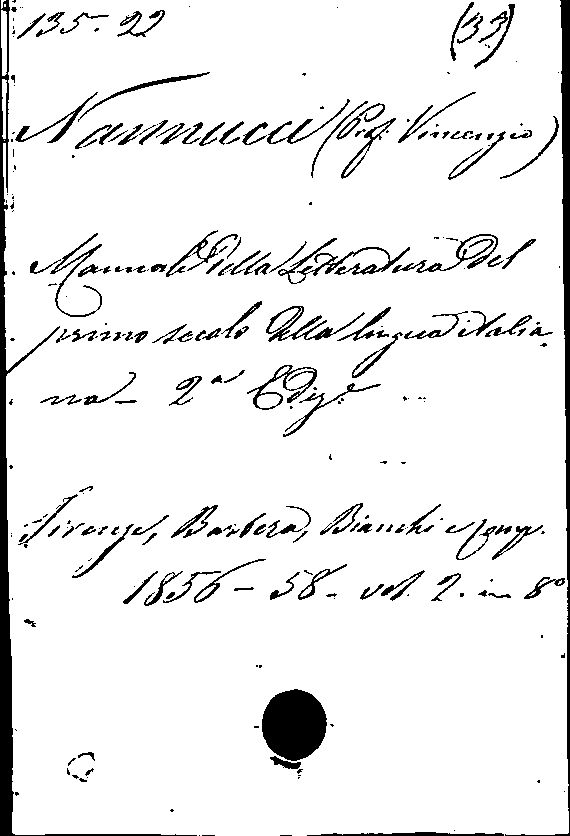 135-22 (33)
Nannucci (Prof. Vincenzio)
Manuale della Letteratura del
primo secolo della lingua italia-
na - 2ª Ediz.e
Firenze, Barbera, Bianchi e comp.
1856-58 - vol. 2. in 8º